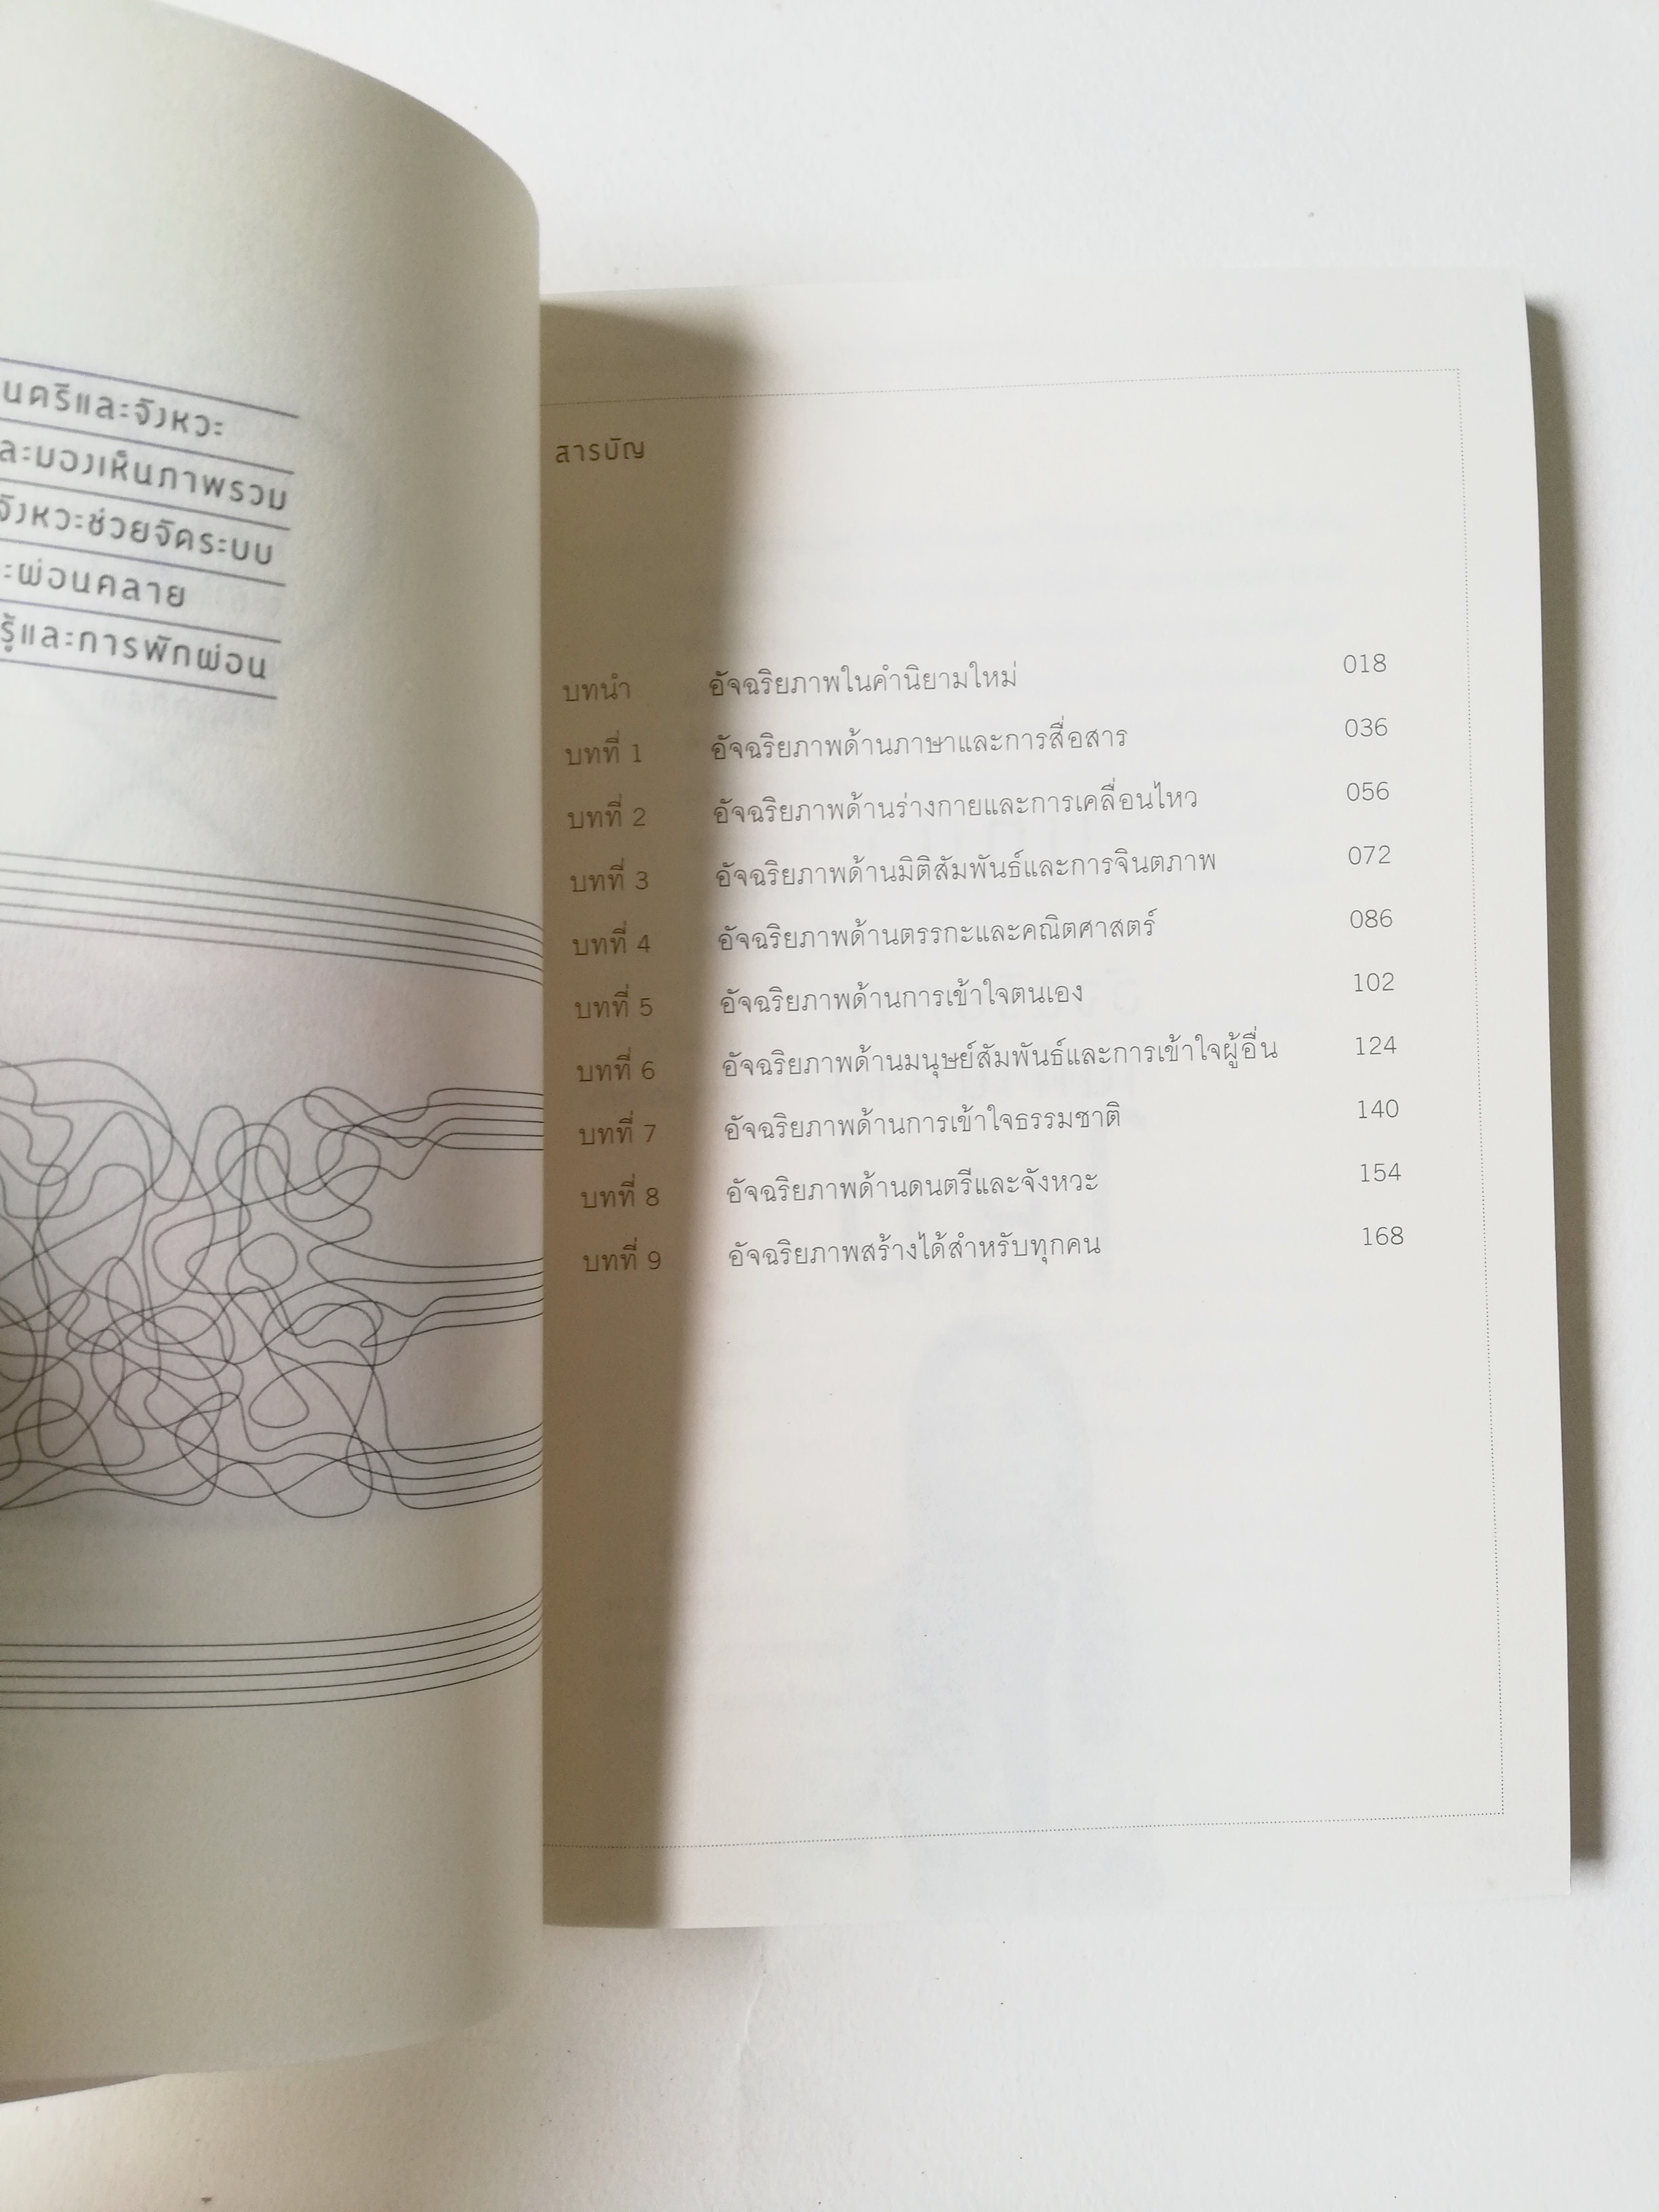 นตรีและจังหวะ
ละมองเห็นภาพรวม
จังหวะช่วยจัดระบบ
ะผ่อนคลาย
รู้และการพักผ่อน
สารบัญ
บทนำ อัจฉริยภาพในคำนิยามใหม่ 018
บทที่ 1 อัจฉริยภาพด้านภาษาและการสื่อสาร 036
บทที่ 2 อัจฉริยภาพด้านร่างกายและการเคลื่อนไหว 056
บทที่ 3 อัจฉริยภาพด้านมิติสัมพันธ์และการจินตภาพ 072
บทที่ 4 อัจฉริยภาพด้านตรรกะและคณิตศาสตร์ 086
บทที่ 5 อัจฉริยภาพด้านการเข้าใจตนเอง 102
บทที่ 6 อัจฉริยภาพด้านมนุษย์สัมพันธ์และการเข้าใจผู้อื่น 124
บทที่ 7 อัจฉริยภาพด้านการเข้าใจธรรมชาติ 140
บทที่ 8 อัจฉริยภาพด้านดนตรีและจังหวะ 154
บทที่ 9 อัจฉริยภาพสร้างได้สำหรับทุกคน 168